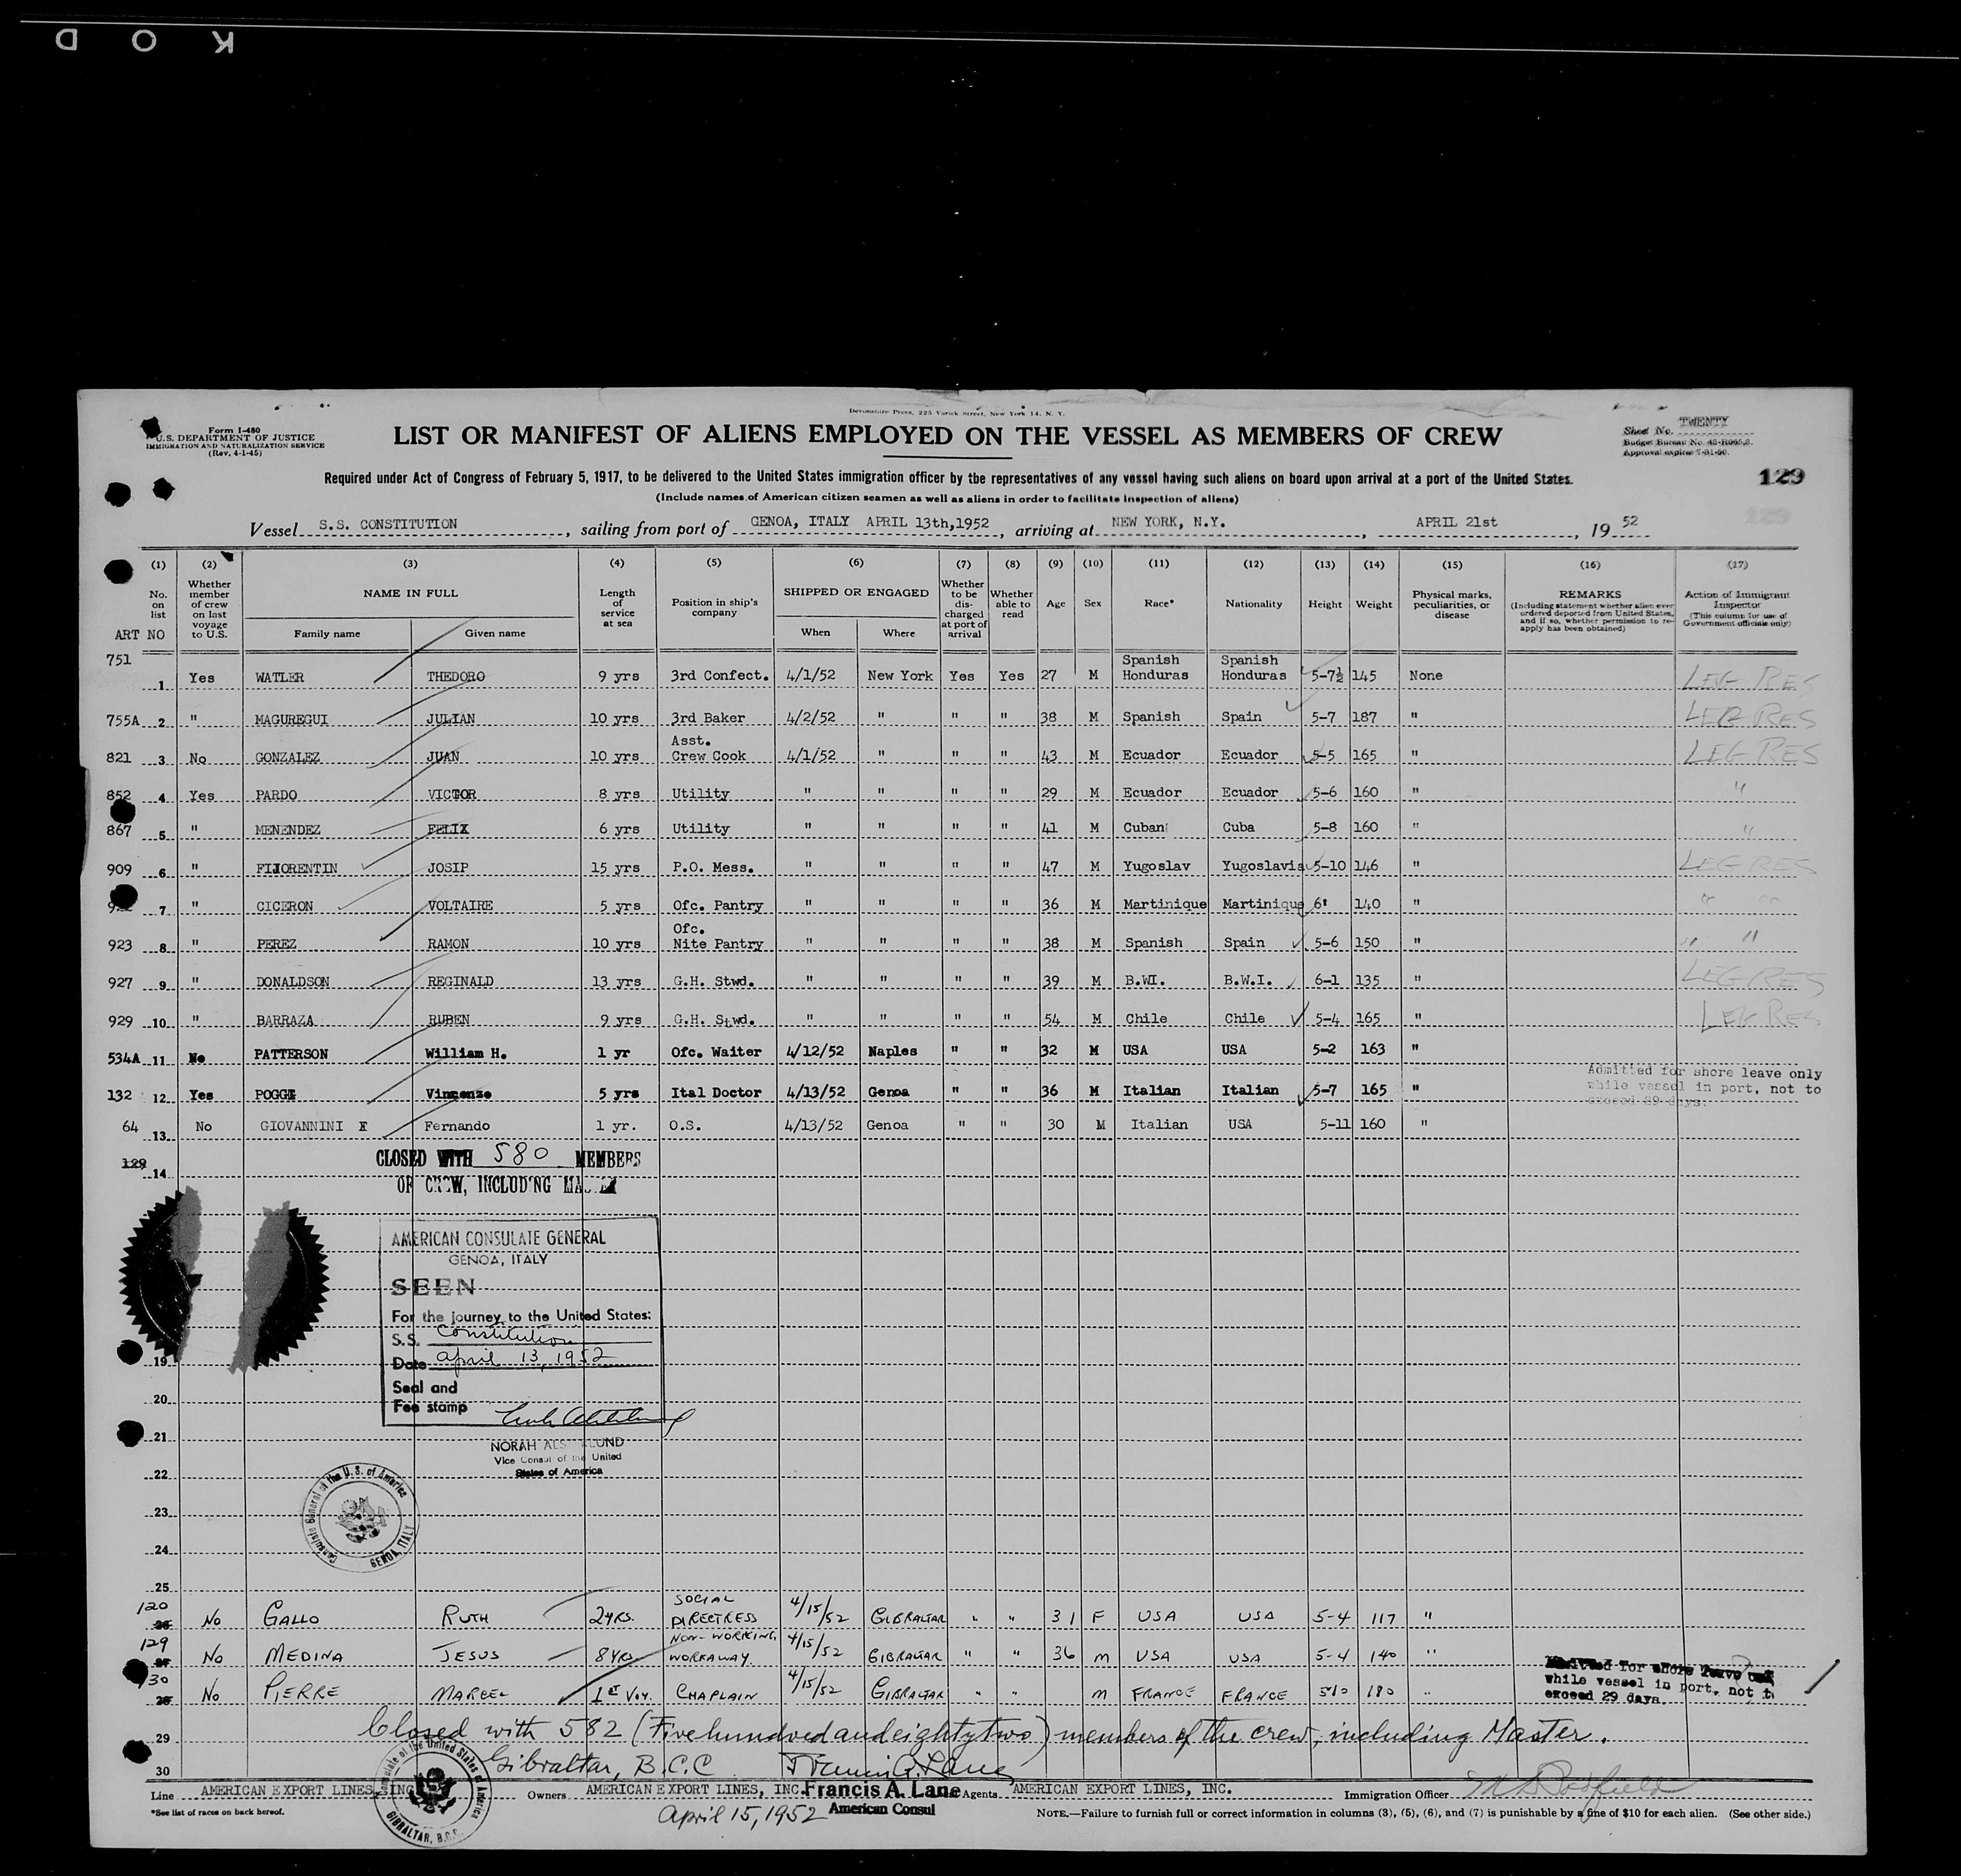 K O D
Devonshire Press, 225 Varick Street, New York 14, N. Y.
Form I-480
U.S. DEPARTMENT OF JUSTICE
IMMIGRATION AND NATURALIZATION SERVICE
(Rev. 4-1-45)
LIST OR MANIFEST OF ALIENS EMPLOYED ON THE VESSEL AS MEMBERS OF CREW
Sheet No. TWENTY
Budget Bureau No. 43-R065.3.
Approval expires 7-31-50.
Required under Act of Congress of February 5, 1917, to be delivered to the United States immigration officer by the representatives of any vessel having such aliens on board upon arrival at a port of the United States.
129
(Include names of American citizen seamen as well as aliens in order to facilitate inspection of aliens)
Vessel S.S. CONSTITUTION, sailing from port of GENOA, ITALY APRIL 13th,1952, arriving at NEW YORK, N.Y., APRIL 21st, 19 52
129
(1) (2) (3) (4) (5) (6) (7) (8) (9) (10) (11) (12) (13) (14) (15) (16) (17)
No. on list
Whether member of crew on last voyage to U.S.
NAME IN FULL
Family name Given name
Length of service at sea
Position in ship's company
SHIPPED OR ENGAGED
When Where
Whether to be discharged at port of arrival
Whether able to read
Age
Sex
Race*
Nationality
Height
Weight
Physical marks, peculiarities, or disease
REMARKS
(Including statement whether alien ever ordered deported from United States, and if so, whether permission to reapply has been obtained)
Action of Immigrant Inspector
(This column for use of Government officials only)
ART NO
751 1 Yes WATLER THEDORO 9 yrs 3rd Confect. 4/1/52 New York Yes Yes 27 M Spanish Honduras Spanish Honduras 5-7½ 145 None LEG RES
755A 2 " MAGUREGUI JULIAN 10 yrs 3rd Baker 4/2/52 " " " 38 M Spanish Spain 5-7 187 " LEG RES
821 3 No GONZALEZ JUAN 10 yrs Asst. Crew Cook 4/1/52 " " " 43 M Ecuador Ecuador 5-5 165 " LEG RES
852 4 Yes PARDO VICTOR 8 yrs Utility " " " " 29 M Ecuador Ecuador 5-6 160 " "
867 5 " MENENDEZ FELIX 6 yrs Utility " " " " 41 M Cuban Cuba 5-8 160 " "
909 6 " FIJORENTIN JOSIP 15 yrs P.O. Mess. " " " " 47 M Yugoslav Yugoslavia 5-10 146 " LEG RES
7 " CICERON VOLTAIRE 5 yrs Ofc. Pantry " " " " 36 M Martinique Martinique 6' 140 " " "
923 8 " PEREZ RAMON 10 yrs Ofc. Nite Pantry " " " " 38 M Spanish Spain 5-6 150 " " "
927 9 " DONALDSON REGINALD 13 yrs G.H. Stwd. " " " " 39 M B.WI. B.W.I. 6-1 135 " LEG RES
929 10 " BARRAZA RUBEN 9 yrs G.H. Stwd. " " " " 54 M Chile Chile 5-4 165 " LEG RES
534A 11 No PATTERSON William H. 1 yr Ofc. Waiter 4/12/52 Naples " " 32 M USA USA 5-2 163 "
132 12 Yes POGGI Vincenzo 5 yrs Ital Doctor 4/13/52 Genoa " " 36 M Italian Italian 5-7 165 " Admitted for shore leave only while vessel in port, not to exceed 29 days.
64 13 No GIOVANNINI Fernando 1 yr. O.S. 4/13/52 Genoa " " 30 M Italian USA 5-11 160 "
129 14
CLOSED WITH 580 MEMBERS
OF CREW, INCLUDING MASTER
AMERICAN CONSULATE GENERAL
GENOA, ITALY
SEEN
For the journey to the United States:
S.S. Constitution
Date April 13, 1952
Seal and
Fee stamp
NORAH
Vice Consul of the United
States of America
19
20
21
22
23
24
25
Consulate General of the U.S. of America GENOA, ITALY
120 26 No GALLO RUTH 2 YRS. SOCIAL DIRECTRESS 4/15/52 GIBRALTAR " " 31 F USA USA 5-4 117 "
129 27 No MEDINA JESUS 8 YRS NON-WORKING WORKAWAY. 4/15/52 GIBRALTAR " " 36 M USA USA 5-4 140 "
130 28 No PIERRE MARCEL 1ST VOY. CHAPLAIN 4/15/52 GIBRALTAR " " M FRANCE FRANCE 510 180 " Admitted for shore leave only while vessel in port, not to exceed 29 days.
29 Closed with 582 (Five hundred and eighty two) members of the crew, including Master.
30 Gibraltar, B.C.C Francis A. Lane
Line AMERICAN EXPORT LINES, INC. Owners AMERICAN EXPORT LINES, INC. Francis A. Lane Agents AMERICAN EXPORT LINES, INC. Immigration Officer
*See list of races on back hereof.
April 15, 1952 American Consul
NOTE.—Failure to furnish full or correct information in columns (3), (5), (6), and (7) is punishable by a fine of $10 for each alien. (See other side.)
Consulate of the United States of America GIBRALTAR, B.C.C.